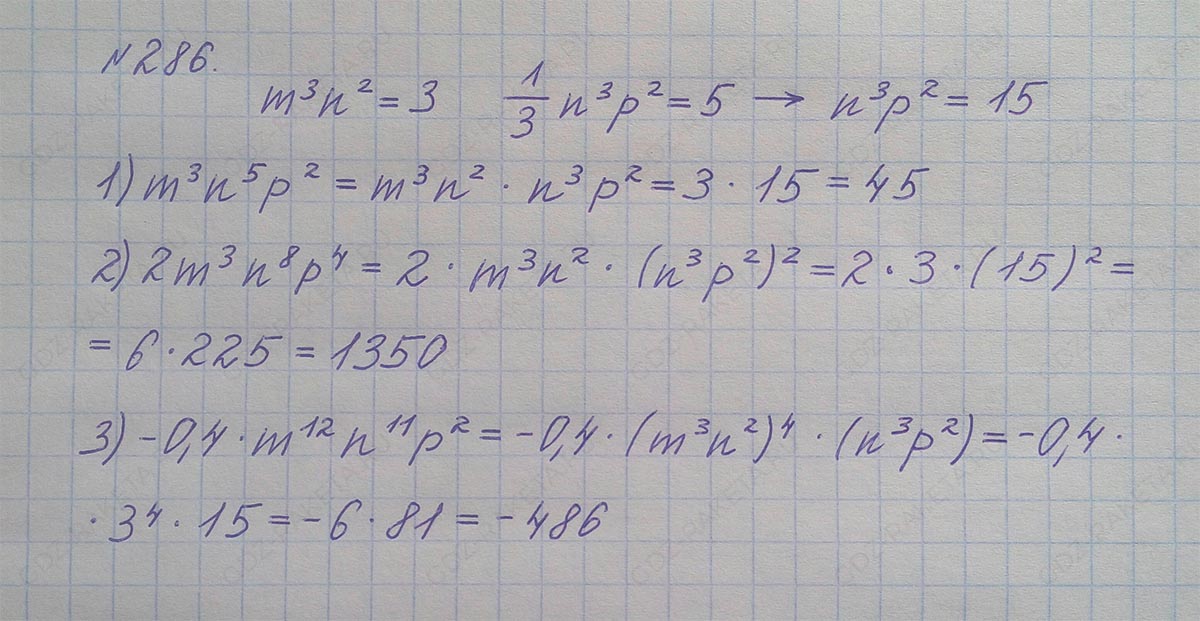 №286.
m³n² = 3   1/3 n³p² = 5 → n³p² = 15
1) m³n⁵p² = m³n² · n³p² = 3 · 15 = 45
2) 2m³n⁸p⁴ = 2 · m³n² · (n³p²)² = 2 · 3 · (15)² =
= 6 · 225 = 1350
3) -0,4 · m¹²n¹¹p² = -0,4 · (m³n²)⁴ · (n³p²) = -0,4 ·
· 3⁴ · 15 = -6 · 81 = -486